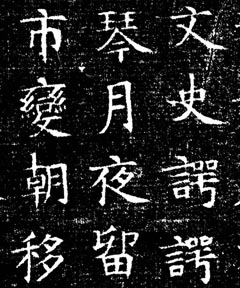 文史諤諤
琴月夜留
市變朝移